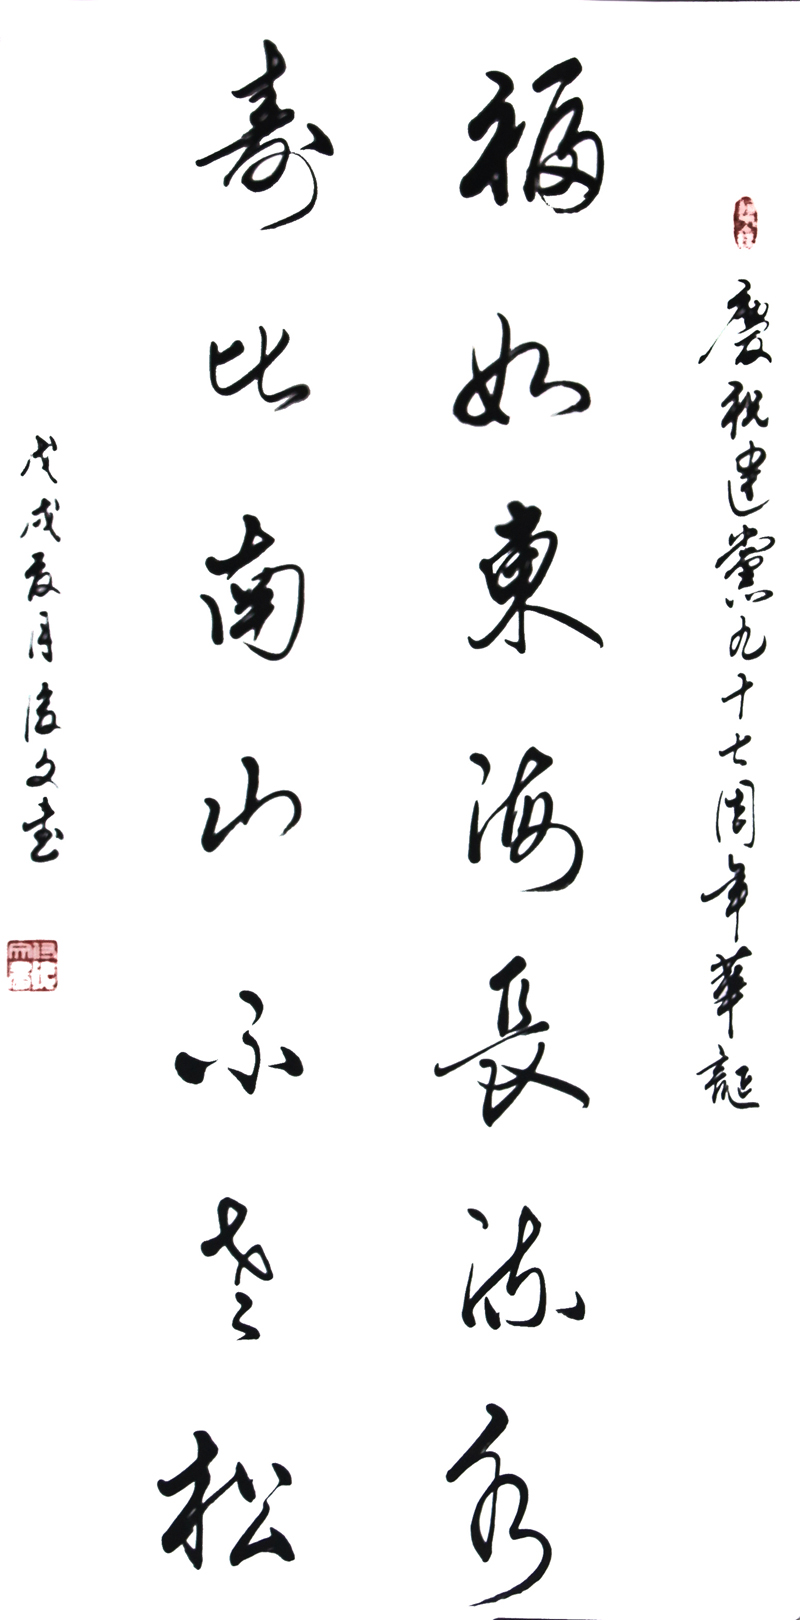 慶祝建黨九十七周年華誕
福如東海長流水
寿比南山不老松
戊戌夏月文書